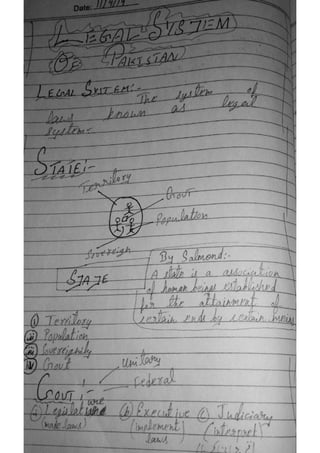 Date: 11/9/19
LEGAL SYSTEM
OF PAKISTAN
LEGAL SYSTEM:-
The system of
laws known as legal
system.
STATE:-
Territory
Govt
Population
Sovereign
STATE
By Salmond:-
A state is a association
of human beings established
for the attainment of
certain ends by certain means
(i) Territory
(ii) Population
(iii) Sovereignity
(iv) Govt
Unitary
Govt:-
Federal
(a) Legislature (b) Executive (c) Judiciary
make laws) (implement (interpret
laws